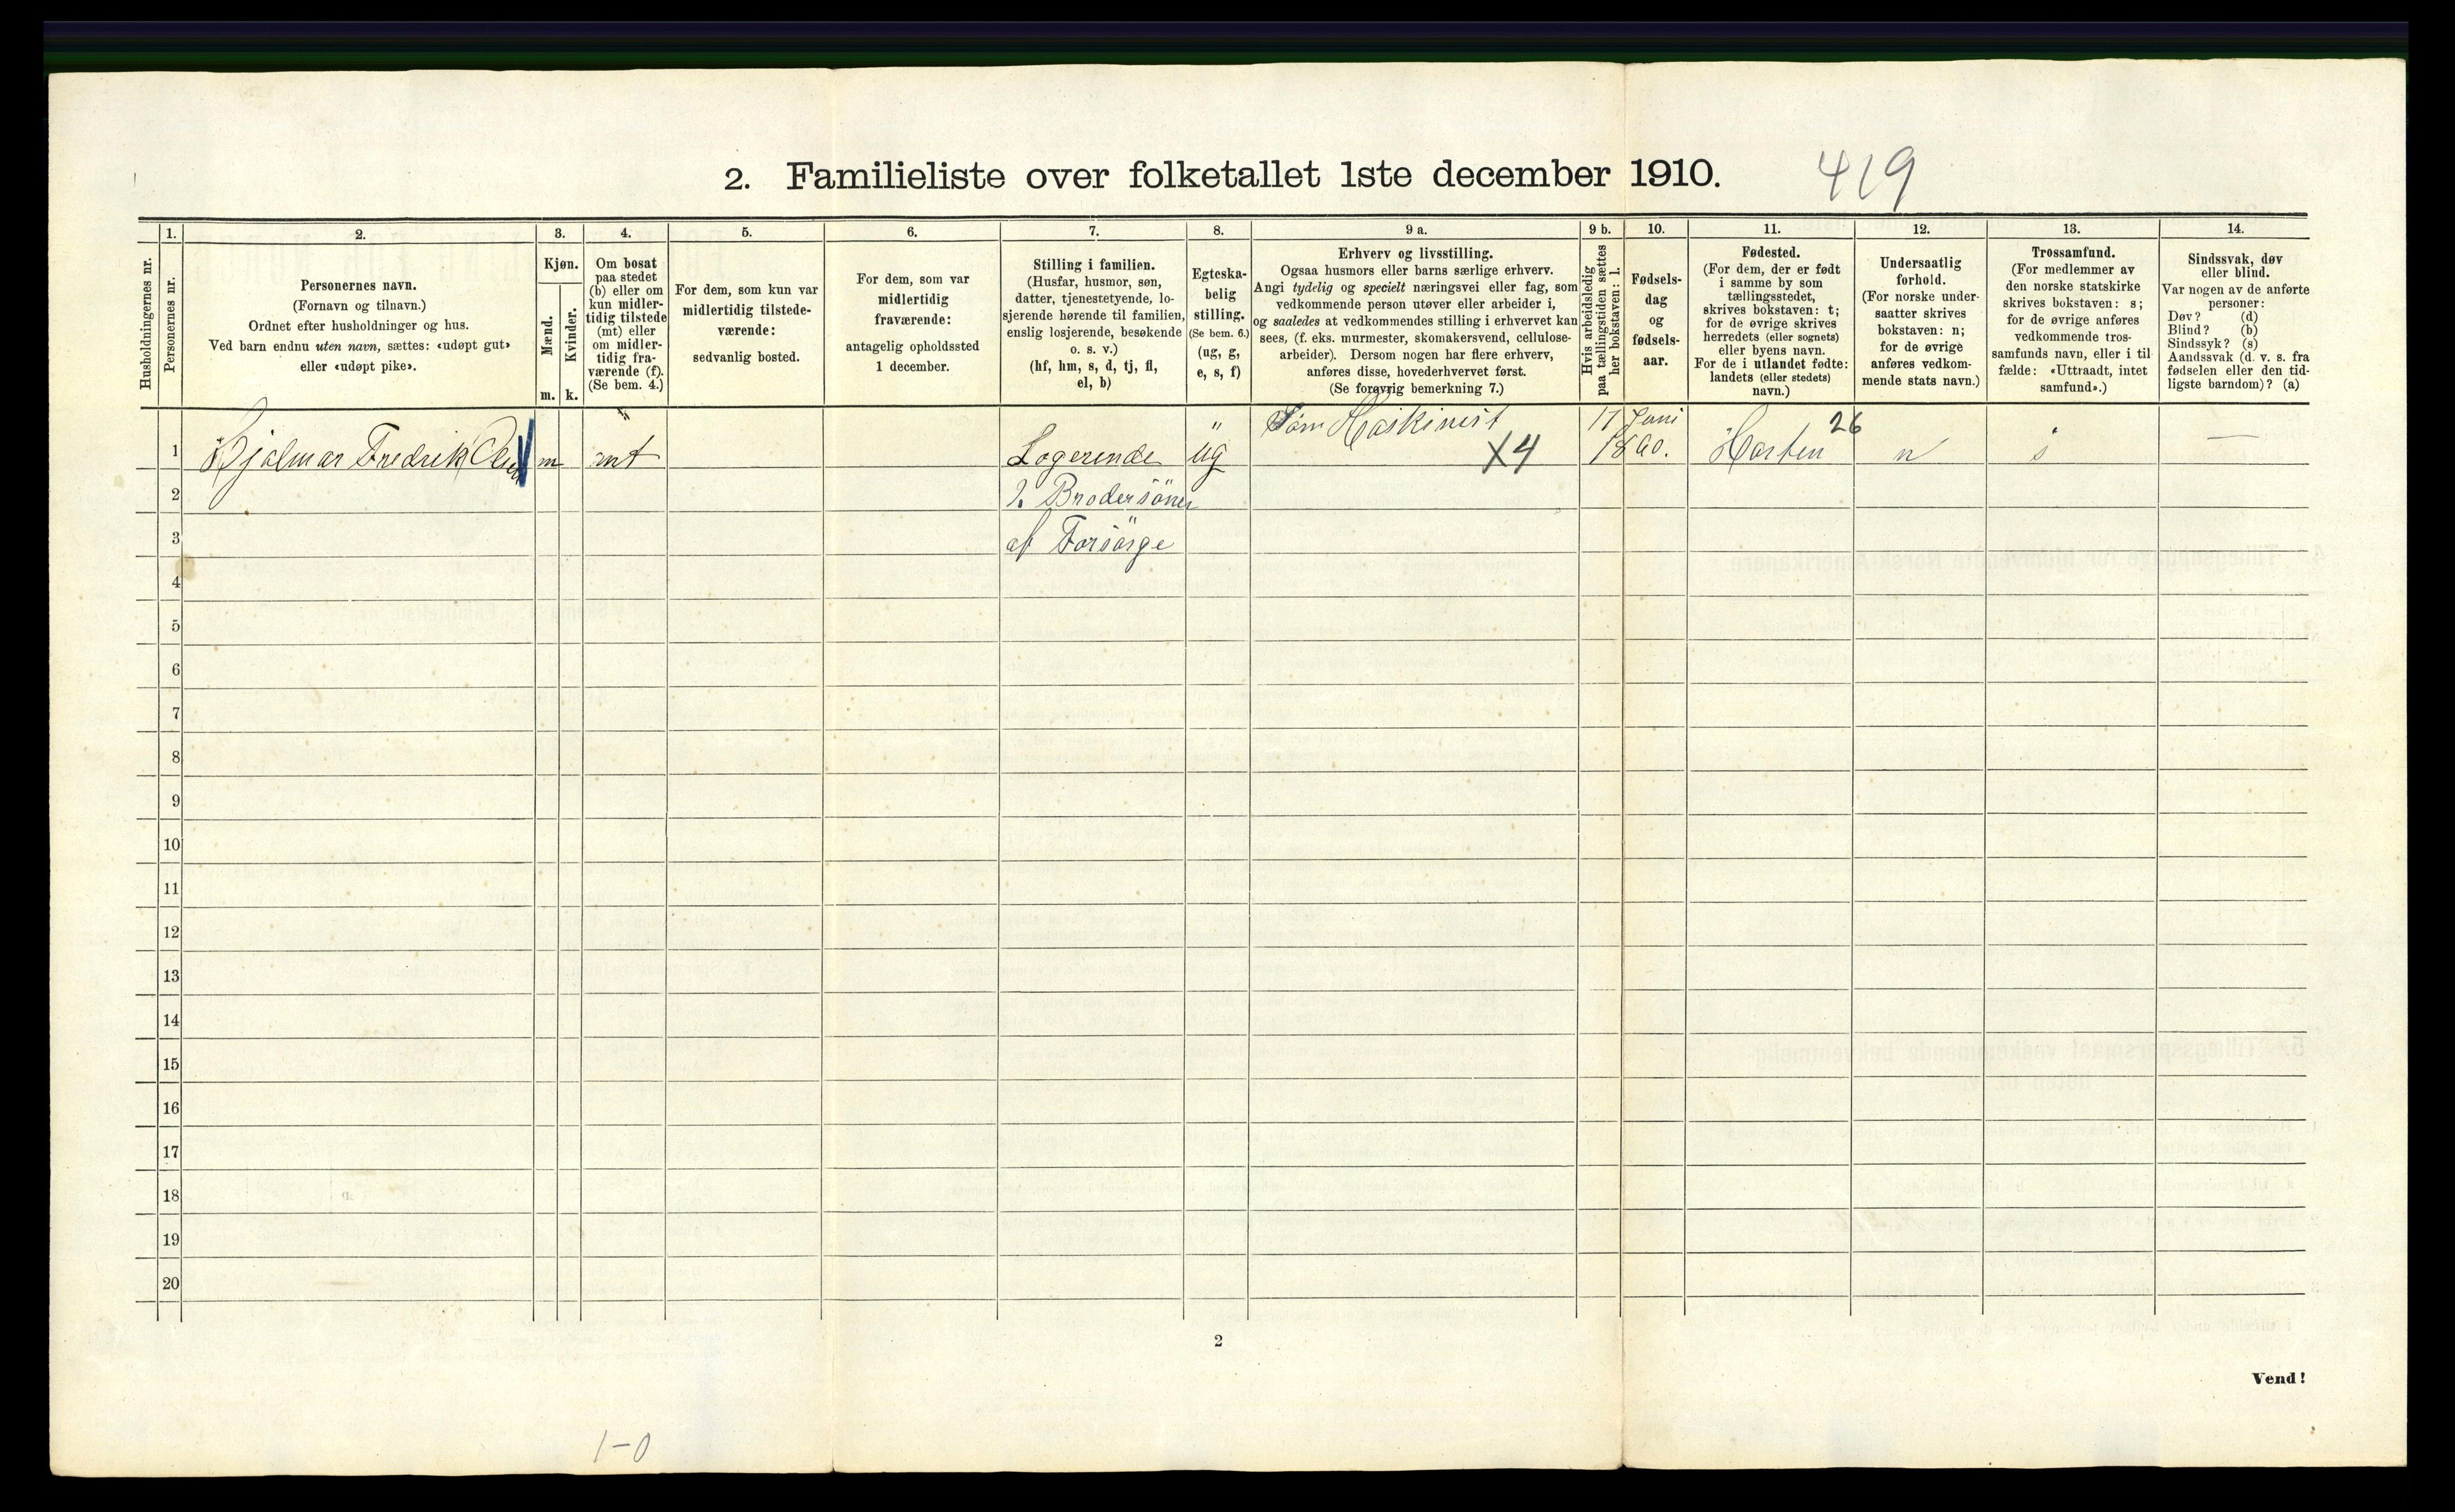 2. Familieliste over folketallet 1ste december 1910.
419
Husholdningernes nr.
1.
Personernes nr.
2.
Personernes navn.
(Fornavn og tilnavn.)
Ordnet efter husholdninger og hus.
Ved barn endnu uten navn, sættes: «udøpt gut»
eller «udøpt pike».
3.
Kjøn.
Mænd.
Kvinder.
m. k.
4.
Om bosat
paa stedet
(b) eller om
kun midler-
tidig tilstede
(mt) eller
om midler-
tidig fra-
værende (f).
(Se bem. 4.)
5.
For dem, som kun var
midlertidig tilstede-
værende:
sedvanlig bosted.
6.
For dem, som var
midlertidig
fraværende:
antagelig opholdssted
1 december.
7.
Stilling i familien.
(Husfar, husmor, søn,
datter, tjenestetyende, lo-
sjerende hørende til familien,
enslig losjerende, besøkende
o. s. v.)
(hf, hm, s, d, tj, fl,
el, b)
8.
Egteska-
belig
stilling.
(Se bem. 6.)
(ug, g,
e, s, f)
9 a.
Erhverv og livsstilling.
Ogsaa husmors eller barns særlige erhverv.
Angi tydelig og specielt næringsvei eller fag, som
vedkommende person utøver eller arbeider i,
og saaledes at vedkommendes stilling i erhvervet kan
sees, (f. eks. murmester, skomakersvend, cellulose-
arbeider). Dersom nogen har flere erhverv,
anføres disse, hovederhvervet først.
(Se forøvrig bemerkning 7.)
9 b.
Hvis arbeidsledig
paa tællingstiden sættes
her bokstaven: l.
10.
Fødsels-
dag
og
fødsels-
aar.
11.
Fødested.
(For dem, der er født
i samme by som
tællingsstedet,
skrives bokstaven: t;
for de øvrige skrives
herredets (eller sognets)
eller byens navn.
For de i utlandet fødte:
landets (eller stedets)
navn.)
12.
Undersaatlig
forhold.
(For norske under-
saatter skrives
bokstaven: n;
for de øvrige
anføres vedkom-
mende stats navn.)
13.
Trossamfund.
(For medlemmer av
den norske statskirke
skrives bokstaven: s;
for de øvrige anføres
vedkommende tros-
samfunds navn, eller i til-
fælde: «Uttraadt, intet
samfund».)
14.
Sindssvak, døv
eller blind.
Var nogen av de anførte
personer:
Døv? (d)
Blind? (b)
Sindssyk? (s)
Aandssvak (d. v. s. fra
fødselen eller den tid-
ligste barndom)? (a)
Maskinist 17 Juni 26
1 Hjalmar Fredrik Olsen m mt Logerende ug X4 1860. Horten n s —
2 2. Brodersöner
3 at Forsörge
4
5
6
7
8
9
10
11
12
13
14
15
16
17
18
19
20
2
Vend!
1-0